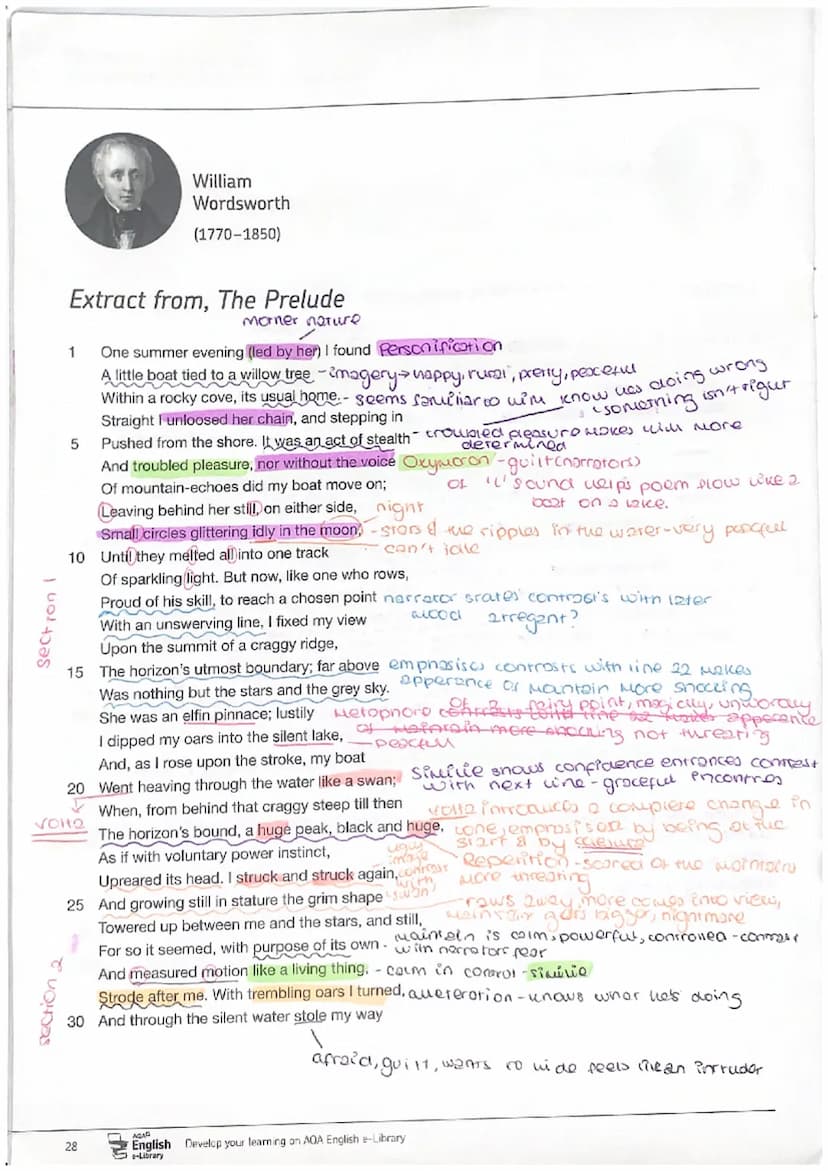 William
Wordsworth
(1770–1850)
Extract from, The Prelude
mother nature
1 One summer evening (led by her) I found Personification
A little boat tied to a willow tree - imagery → happy, rural, pretty, peaceful
Within a rocky cove, its usual home. - seems familiar to him know hes doing wrong
Straight I unloosed her chain, and stepping in something isn't right
5 Pushed from the shore. It was an act of stealth - troubled pleasure makes him more
determined
And troubled pleasure, nor without the voice Oxymoron - guilt (narrators)
Of mountain-echoes did my boat move on; 'l' sound helps poem flow like a
boat on a lake.
Leaving behind her still, on either side, night
Small circles glittering idly in the moon, - stars & the ripples in the water - very peaceful
10 Until they melted all into one track can't
Of sparkling light. But now, like one who rows,
Proud of his skill, to reach a chosen point narrator states contrasts with later
With an unswerving line, I fixed my view mood arregent?
Upon the summit of a craggy ridge,
section 1
15 The horizon's utmost boundary; far above emphasises contrasts with line 22 makes
Was nothing but the stars and the grey sky. apperance of mantain more shocking
She was an elfin pinnace; lustily Metaphore
I dipped my oars into the silent lake, not threating
And, as I rose upon the stroke, my boat
20 Went heaving through the water like a swan; Similie shows confidence entrances contrast
with next line - graceful
When, from behind that craggy steep till then
volta volta introduces a complete change in
The horizon's bound, a huge peak, black and huge, tone, emphasised by being at the
start & by
As if with voluntary power instinct, ugly image contrast with 'swan'
Repetition - scared of the mountain
Upreared its head. I struck and struck again, more threating
25 And growing still in stature the grim shape rows away, more comes into view,
Towered up between me and the stars, and still, gets bigger, nightmare
For so it seemed, with purpose of its own - mantain is calm, powerful, controlled - contrast
with narrators fear
And measured motion like a living thing. - calm in control - similie
section 2
Strode after me. With trembling oars I turned, alleteration - knows what hes doing
30 And through the silent water stole my way
afraid, guilt, wants to hide feels like an intruder
28 AQA English e-Library Develop your learning on AQA English e-Library